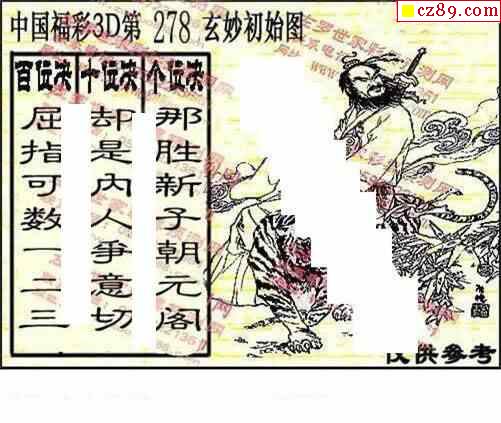 cz89.com
中国福彩3D第 278 玄妙初始图
百位决 十位决 个位决
屈指可数一二三
却是内人争意切
那胜新子朝元阁
仅供参考